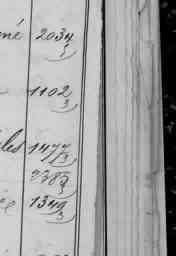 né 2034
3
1102
3
les 1477
3
2382
3
e 1349
3